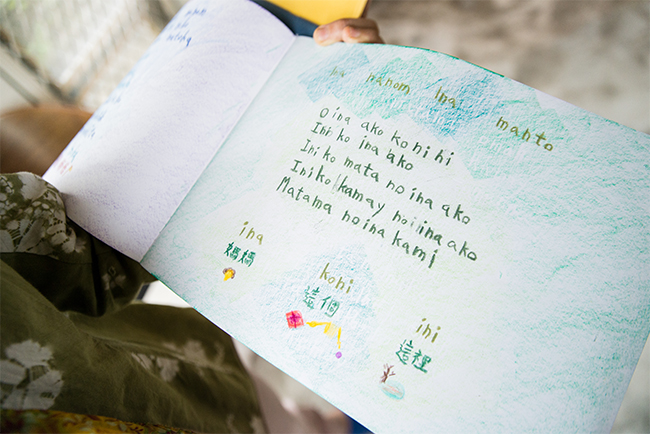 Ina nanom Ina manto
O ina ako koni hi
Ini ko ina ako
Ini ko mata no ina ako
Ini ko kamay no ina ako
Matama no ina kami
ina
媽媽
koni
這個
ini
這裡